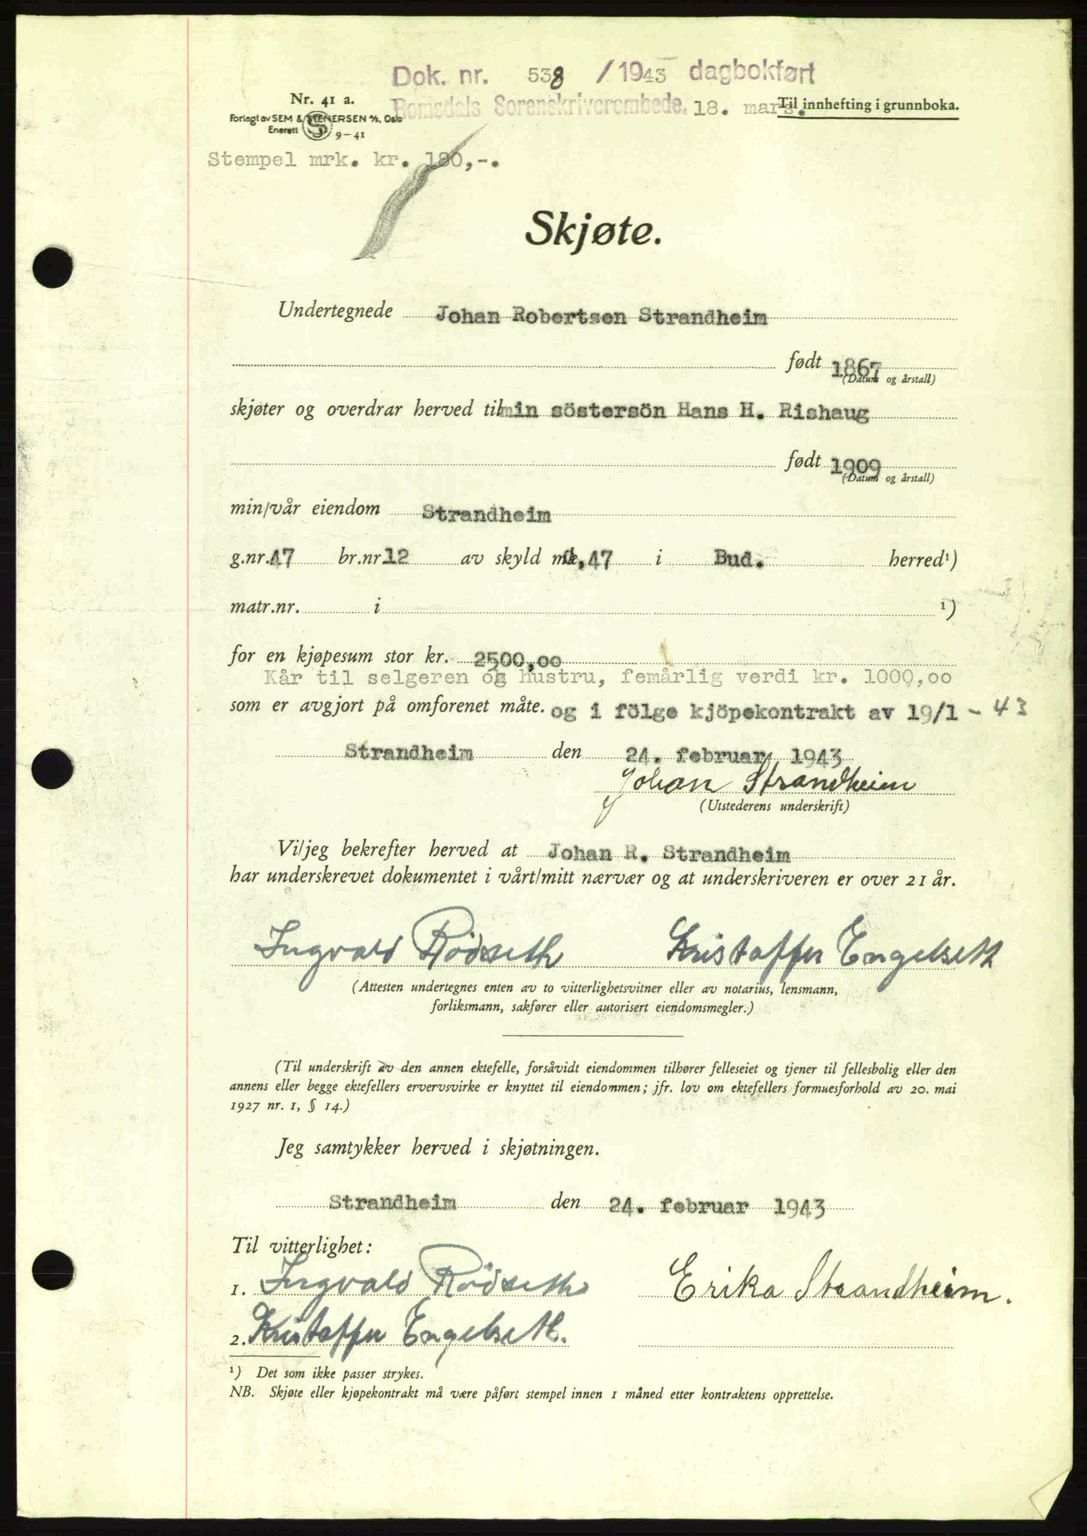 Dok. nr. 538 /1943 dagbokført
Romsdals Sorenskriverembede. 18. mars.
Nr. 41 a.
Til innhefting i grunnboka.
Forlagt av SEM & STENERSEN A/S, Oslo
Enerett 9-41
Stempel mrk. kr. 180,-.
Skjøte.
Undertegnede Johan Robertsen Strandheim
født 1867
(Datum og årstall)
skjøter og overdrar herved til min söstersön Hans H. Rishaug
født 1909
(Datum og årstall)
min/vår eiendom Strandheim
g.nr. 47 br.nr. 12 av skyld mk. 0,47 i Bud. herred¹)
matr.nr. i ¹)
for en kjøpesum stor kr. 2500,00
Kår til selgeren og hustru, femårlig verdi kr. 1000,00
som er avgjort på omforenet måte. og i fölge kjöpekontrakt av 19/1 - 43
Strandheim den 24. februar 1943
Johan Strandheim
(Utstederens underskrift)
Vi/jeg bekrefter herved at Johan R. Strandheim
har underskrevet dokumentet i vårt/mitt nærvær og at underskriveren er over 21 år.
Ingvald Rödseth Kristoffer Engelseth
(Attesten undertegnes enten av to vitterlighetsvitner eller av notarius, lensmann,
forliksmann, sakfører eller autorisert eiendomsmegler.)
(Til underskrift av den annen ektefelle, forsåvidt eiendommen tilhører felleseiet og tjener til fellesbolig eller den
annens eller begge ektefellers ervervsvirke er knyttet til eiendommen; jfr. lov om ektefellers formuesforhold av 20. mai
1927 nr. 1, § 14.)
Jeg samtykker herved i skjøtningen.
Strandheim den 24. februar 1943
Til vitterlighet:
1. Ingvald Rödseth Erika Strandheim.
2. Kristoffer Engelseth.
¹) Det som ikke passer strykes.
NB. Skjøte eller kjøpekontrakt må være påført stempel innen 1 måned etter kontraktens opprettelse.